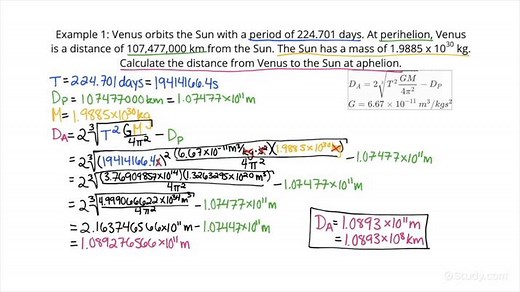 Example 1: Venus orbits the Sun with a period of 224.701 days. At perihelion, Venus
is a distance of 107,477,000 km from the Sun. The Sun has a mass of 1.9885 x 10³⁰ kg.
Calculate the distance from Venus to the Sun at aphelion.
T = 224.701 days = 19414166.4s
D_P = 107477000 km = 1.07477×10¹¹m
M = 1.9885×10³⁰kg
D_A = 2∛(T² GM/4π²) - D_P
D_A = 2√(T² GM/4π²) - D_P
G = 6.67 × 10⁻¹¹ m³/kgs²
= 2∛((19414166.4s)²(6.67×10⁻¹¹m³/kg·s²)(1.9885×10³⁰kg)/4π²) - 1.07477×10¹¹m
= 2∛((3.76909857×10¹⁴)(1.3263295×10²⁰m³)/4π²) - 1.07477×10¹¹m
= 2∛(4.999066622×10³⁴m³/4π²) - 1.07477×10¹¹m
= 2.163746566×10¹¹m - 1.07447×10¹¹m
= 1.089276566×10¹¹m
D_A = 1.0893×10¹¹m
= 1.0893×10⁸km
Study.com